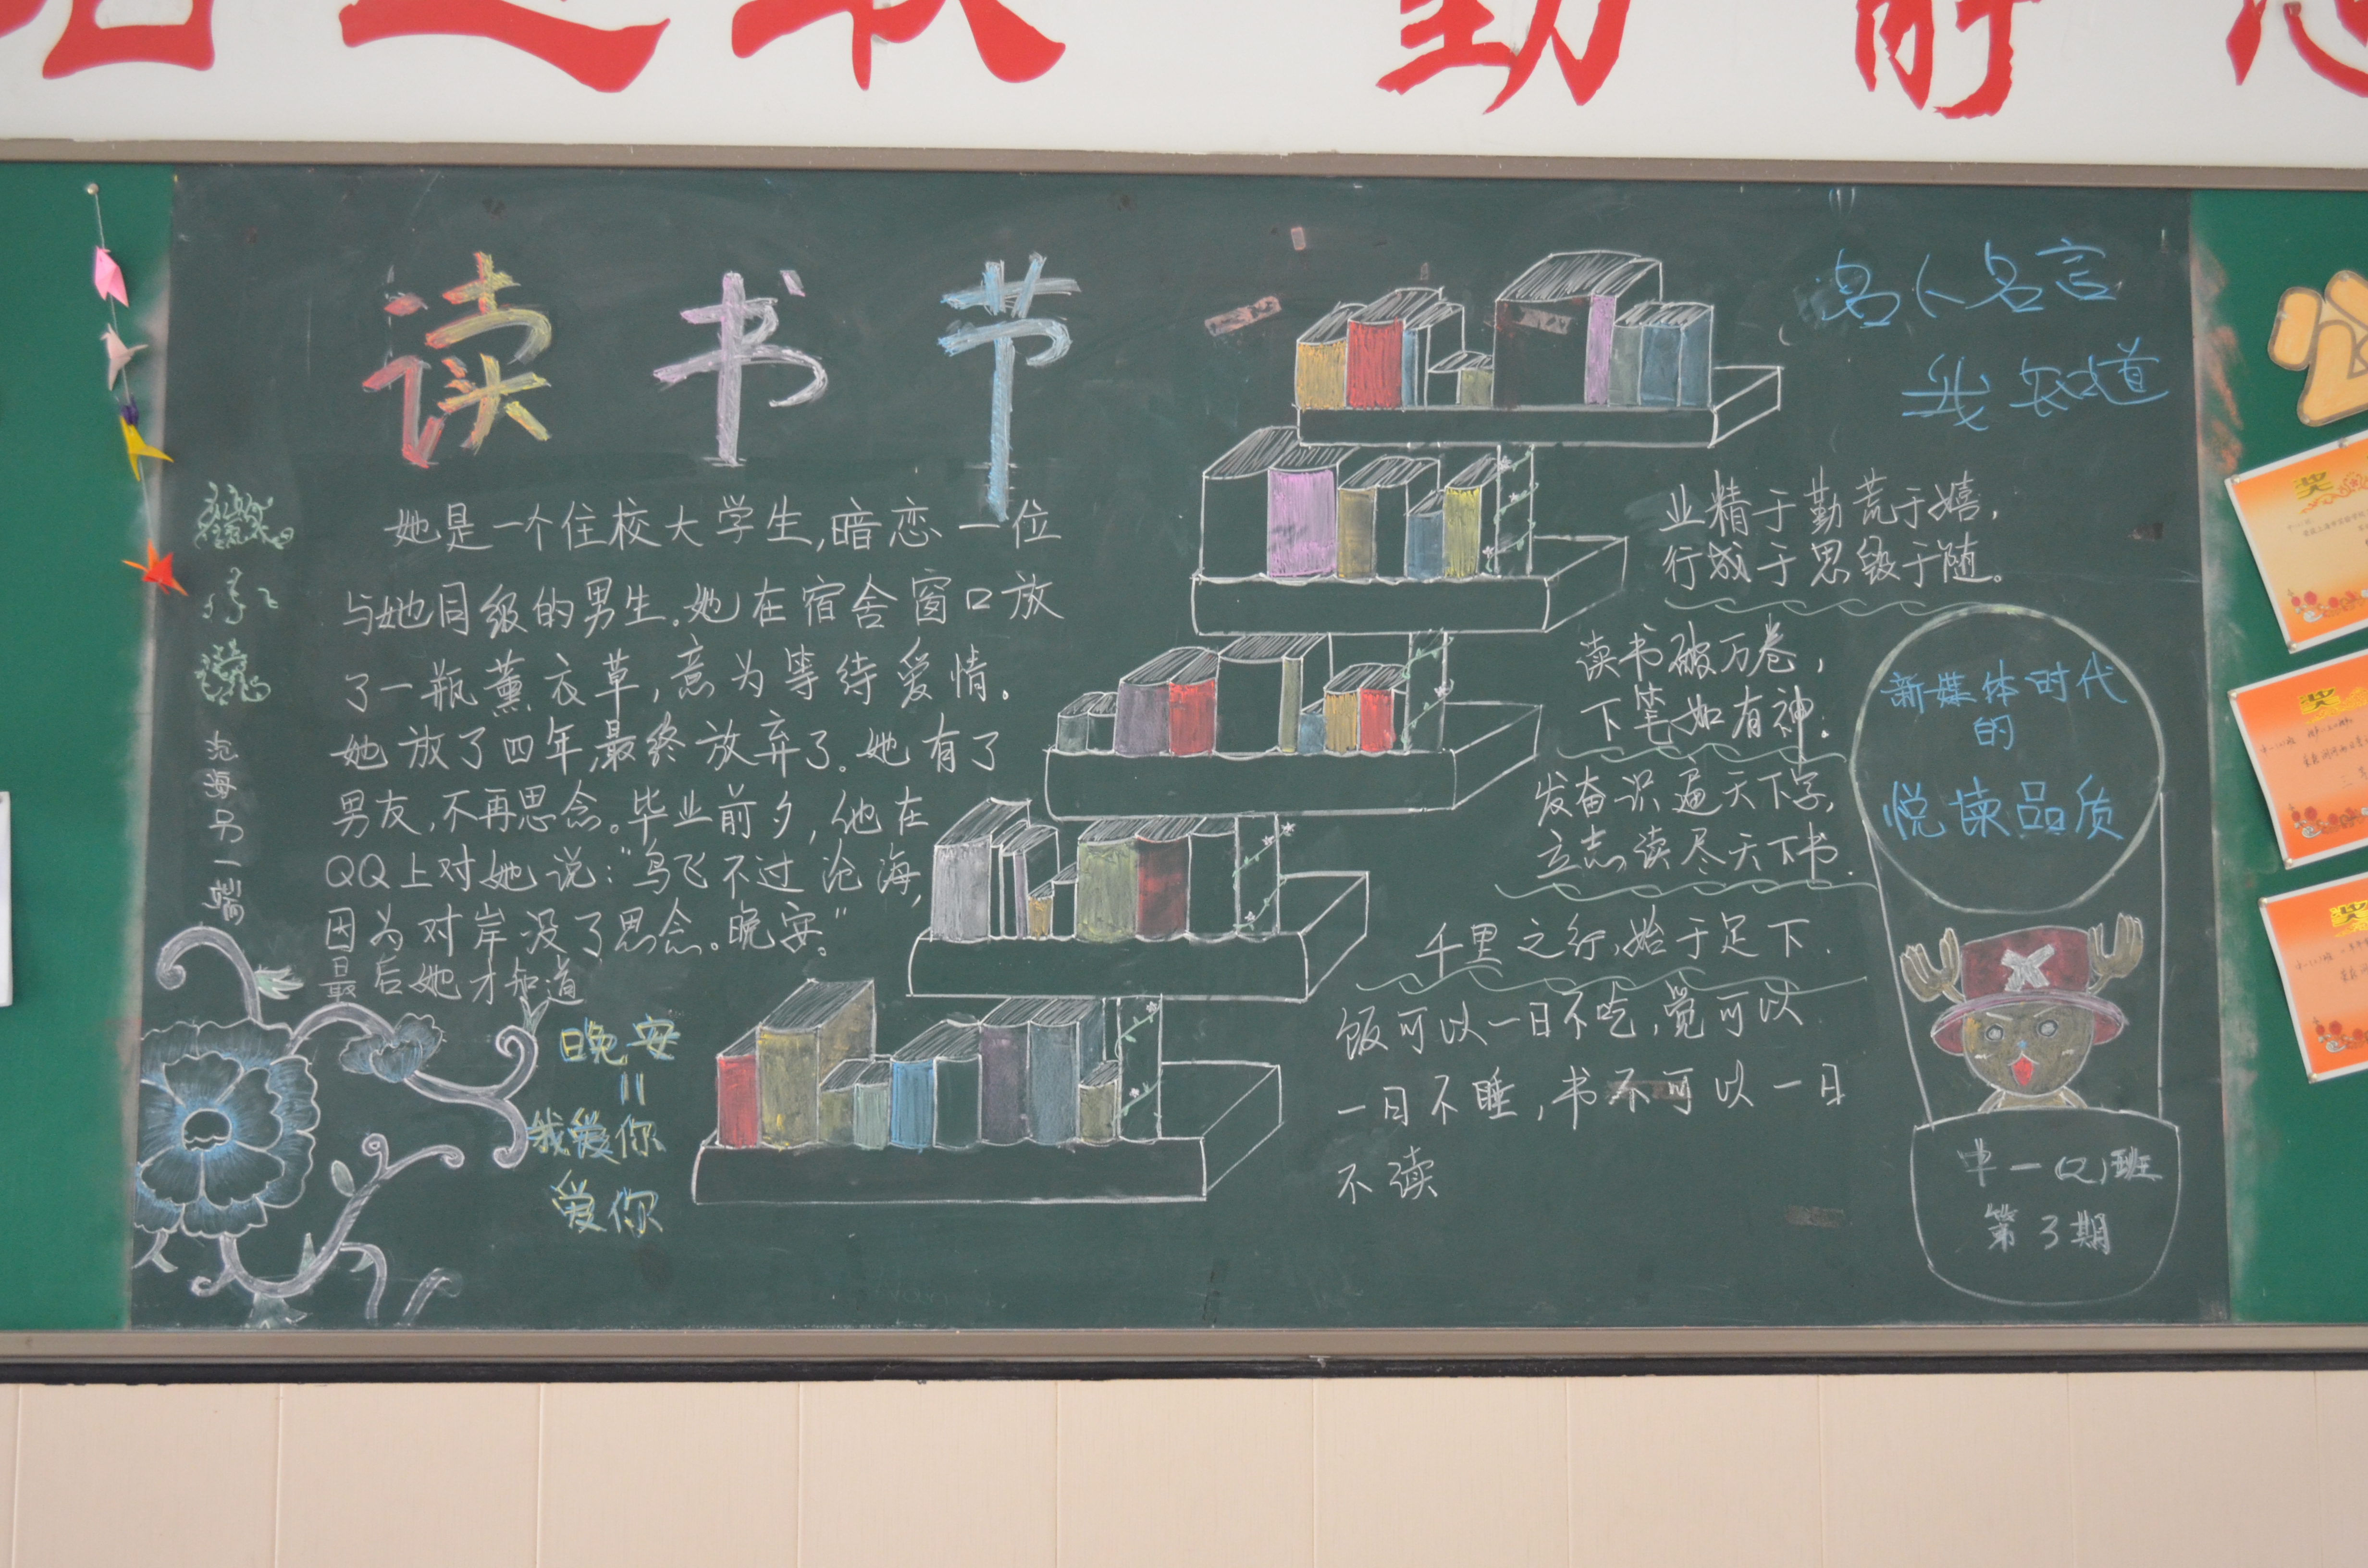 进取 勤
读书节
微小说
沧海另一端
她是一个住校大学生,暗恋一位
与她同级的男生。她在宿舍窗口放
了一瓶薰衣草,意为等待爱情。
她放了四年,最终放弃了。她有了
男友,不再思念。毕业前夕,他在
QQ上对她说:“鸟飞不过沧海,
因为对岸没了思念。晚安。”
最后她才知道
晚安
=
我爱你
爱你
名人名言
我知道
业精于勤荒于嬉,
行成于思毁于随。
读书破万卷,
下笔如有神.
发奋识遍天下字,
立志读尽天下书.
千里之行,始于足下.
饭可以一日不吃,觉可以
一日不睡,书不可以一日
不读
新媒体时代
的
悦读品质
中一(2)班
第3期
奖
奖
奖